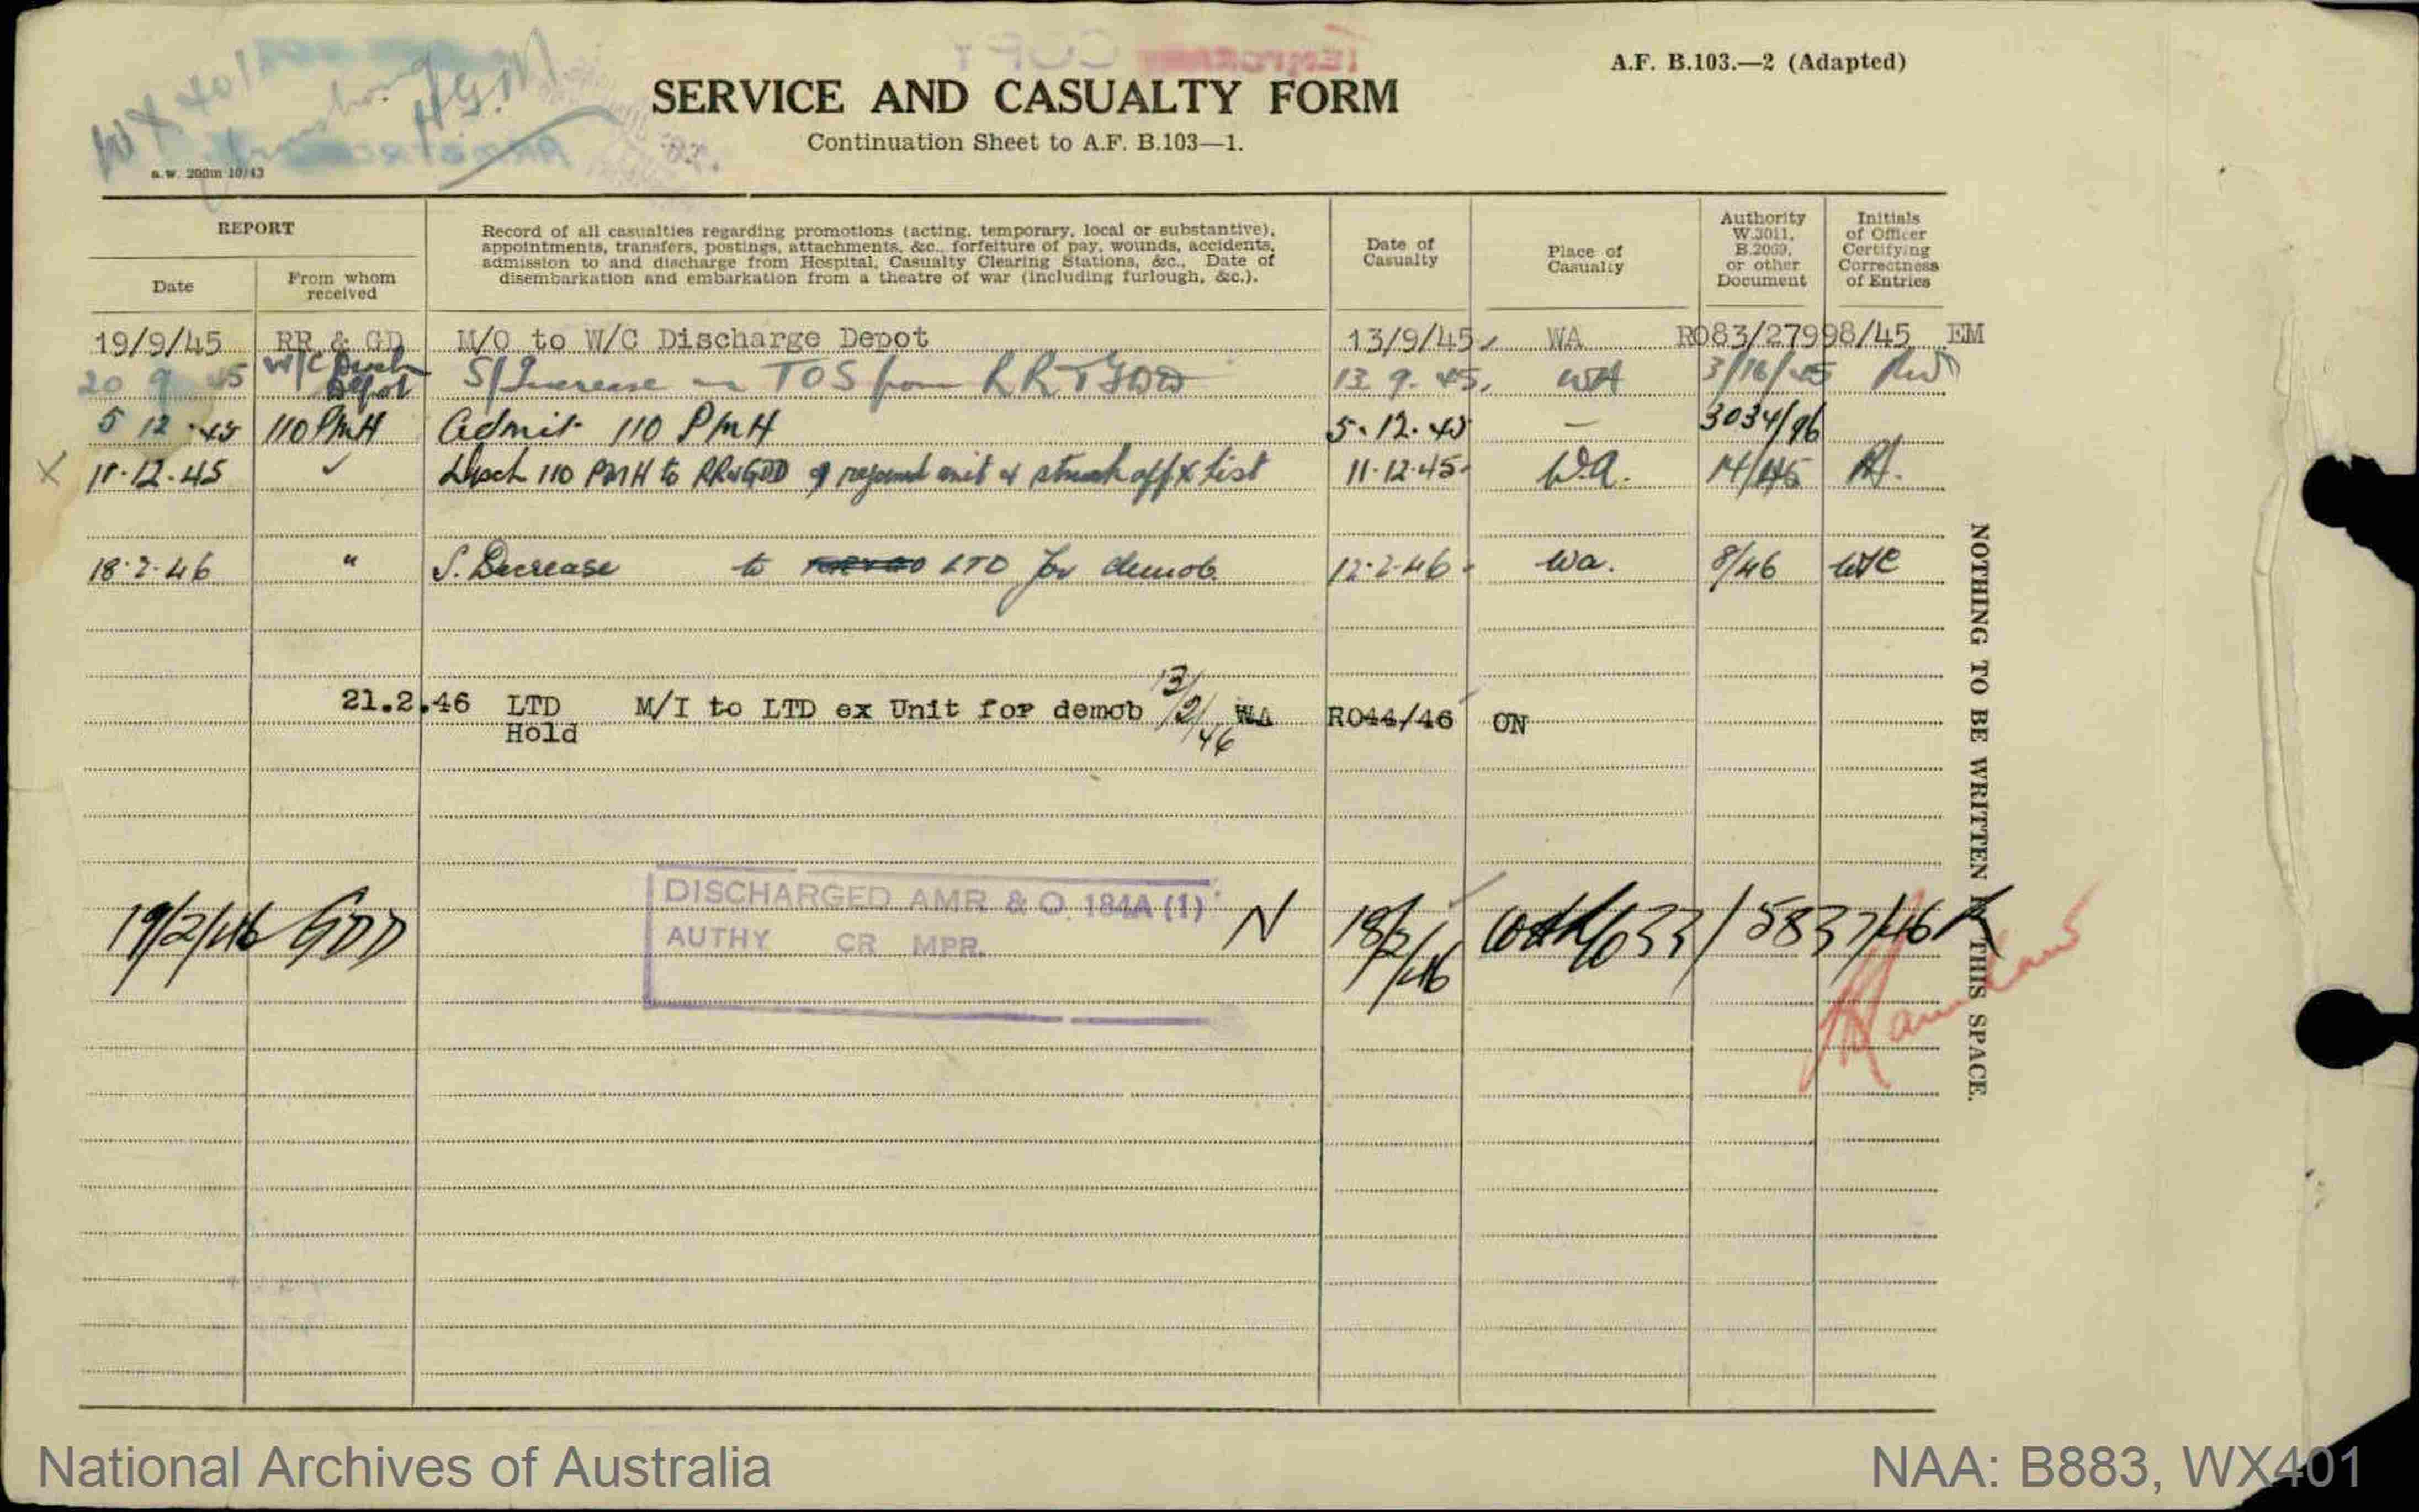 A.F. B.103.—2 (Adapted)
SERVICE AND CASUALTY FORM
Continuation Sheet to A.F. B.103—1.
a.w. 200m 10/43
REPORT
Date
From whom received
Record of all casualties regarding promotions (acting, temporary, local or substantive),
appointments, transfers, postings, attachments, &c., forfeiture of pay, wounds, accidents,
admission to and discharge from Hospital, Casualty Clearing Stations, &c., Date of
disembarkation and embarkation from a theatre of war (including furlough, &c.).
Date of Casualty
Place of Casualty
Authority W.3011, B.2069, or other Document
Initials of Officer Certifying Correctness of Entries
19/9/45 RR & GD M/O to W/C Discharge Depot 13/9/45 WA RO83/27998/45 EM
20 9 45 W/C Depot S/Increase TOS from 13 9. 45. WA 3/16/45
5 12 45 110 PMH Admit 110 PMH 5.12.45 — 3034/96
X 11.12.45 ✓ Disch 110 PMH to RR&GDD unit & struck off X list 11.12.45 W.A. 14/45
18.2.46 " S. Decrease to LTD for demob. 12.2.46 Wa. 8/46
21.2.46 LTD Hold M/I to LTD ex Unit for demob 13/2/46 WA RO44/46 ON
19/2/46 GDD DISCHARGED AMR & O. 184A (1) N 18/2/46
AUTHY CR MPR. /5837/46
NOTHING TO BE WRITTEN IN THIS SPACE.
National Archives of Australia
NAA: B883, WX401